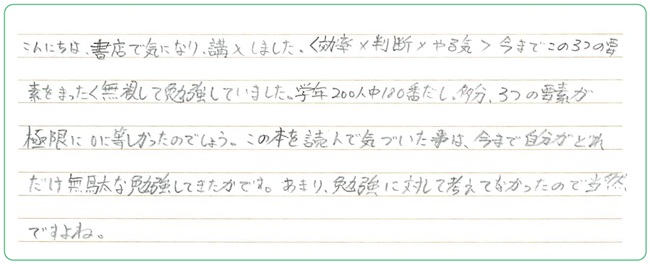 こんにちは、書店で気になり、購入しました。<効率×判断×やる気>今までこの3つの要
素をまったく無視して勉強していました。学年200人中180番だし、多分、3つの要素が
極限に0に等しかったのでしょう。この本を読んで気づいた事は、今まで自分がどれ
だけ無駄な勉強してきたかです。あまり、勉強に対して考えてなかったので当然、
ですよね。